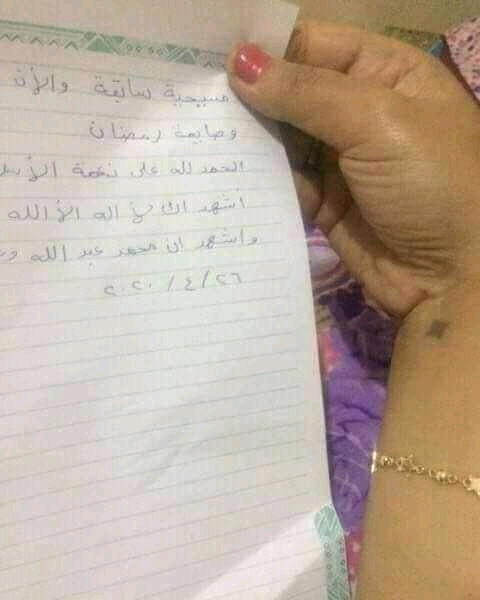 مسيحية سابقة والأن
وصايمة رمضان
الحمد لله على نعمة الأسلا
أشهد ان لا اله الا الله
واشهد ان محمد عبد الله و
٢٠٢٠/٤/٢٦